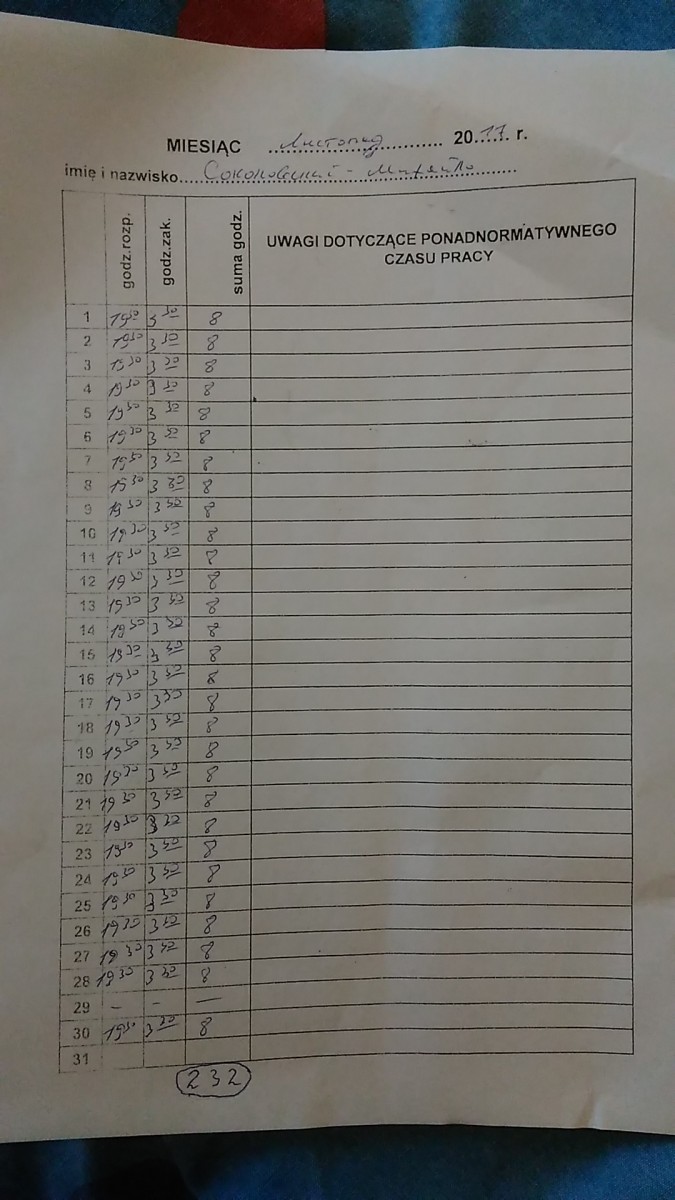 MIESIĄC Листопад 2017. r.
imię i nazwisko
godz.rozp. godz.zak. suma godz. UWAGI DOTYCZĄCE PONADNORMATYWNEGO
CZASU PRACY
1 19³⁰ 3³⁰ 8
2 19³⁰ 3³⁰ 8
3 19³⁰ 3³⁰ 8
4 19³⁰ 3³⁰ 8
5 19³⁰ 3³⁰ 8
6 19³⁰ 3³⁰ 8
7 19³⁰ 3³⁰ 8
8 19³⁰ 3³⁰ 8
9 19³⁰ 3³⁰ 8
10 19³⁰ 3³⁰ 8
11 19³⁰ 3³⁰ 8
12 19³⁰ 3³⁰ 8
13 19³⁰ 3³⁰ 8
14 19³⁰ 3³⁰ 8
15 19³⁰ 3³⁰ 8
16 19³⁰ 3³⁰ 8
17 19³⁰ 3³⁰ 8
18 19³⁰ 3³⁰ 8
19 19³⁰ 3³⁰ 8
20 19³⁰ 3³⁰ 8
21 19³⁰ 3³⁰ 8
22 19³⁰ 3³⁰ 8
23 19³⁰ 3³⁰ 8
24 19³⁰ 3³⁰ 8
25 19³⁰ 3³⁰ 8
26 19³⁰ 3³⁰ 8
27 19³⁰ 3³⁰ 8
28 19³⁰ 3³⁰ 8
29 – – —
30 19³⁰ 3³⁰ 8
31
232